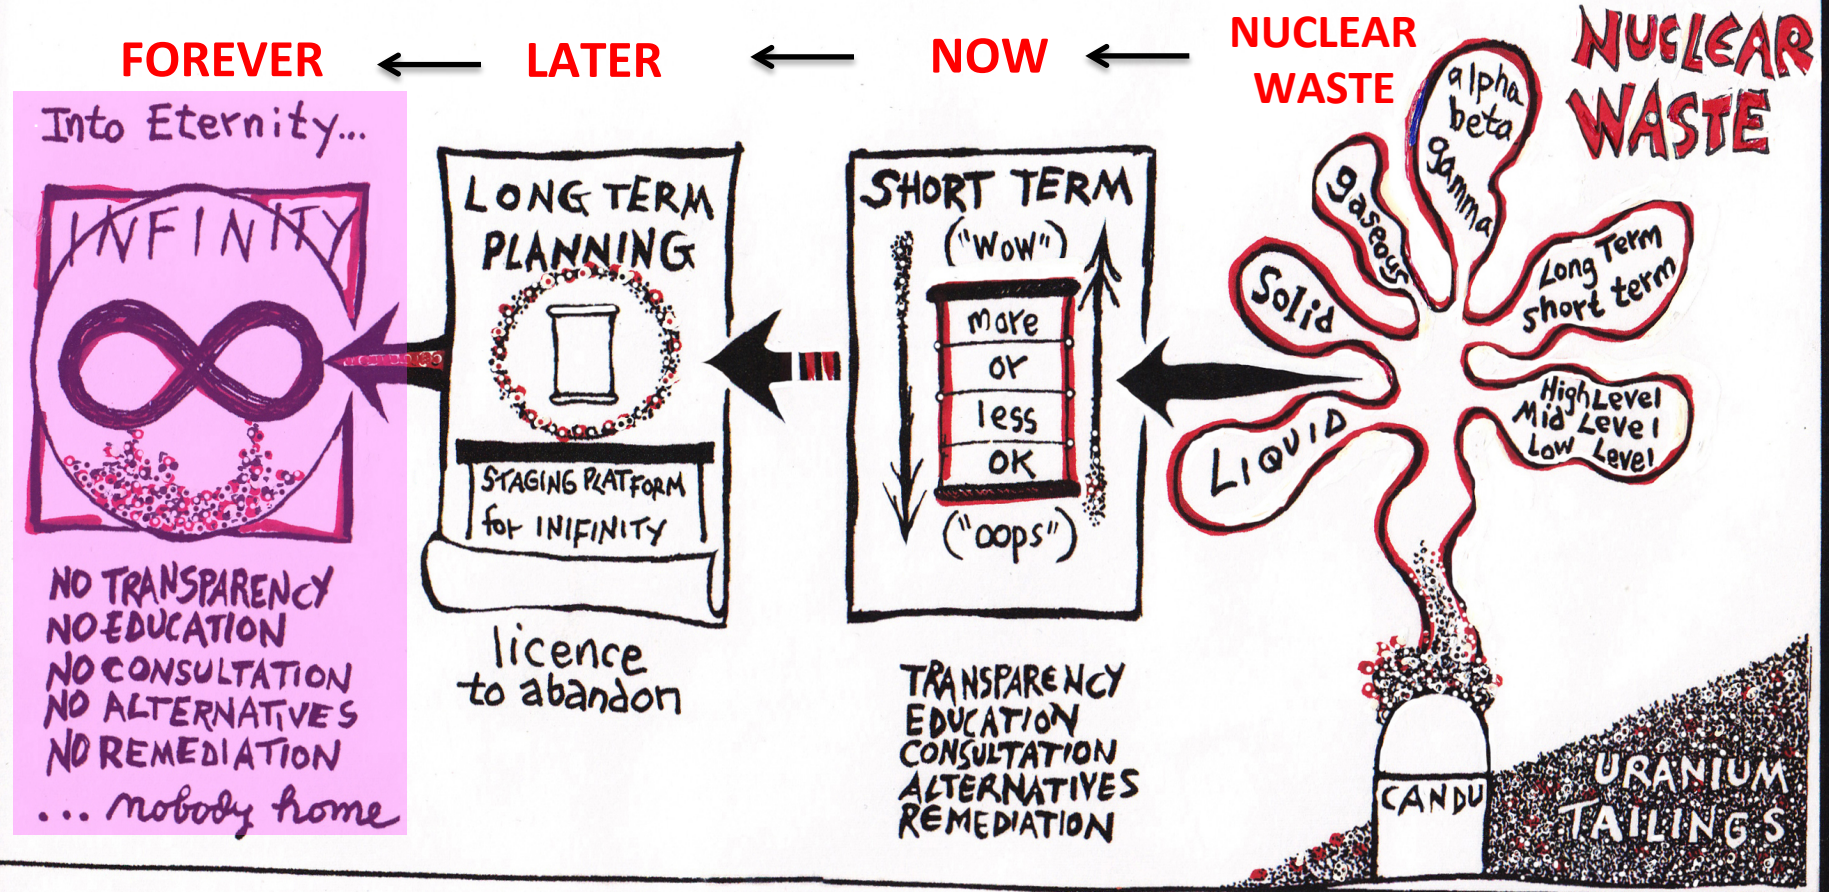 FOREVER
LATER
NOW
NUCLEAR
WASTE
NUCLEAR
WASTE
Into Eternity...
INFINITY
NO TRANSPARENCY
NO EDUCATION
NO CONSULTATION
NO ALTERNATIVES
NO REMEDIATION
... nobody home
LONG TERM
PLANNING
STAGING PLATFORM
for INIFINITY
licence
to abandon
SHORT TERM
("WOW")
more
or
less
OK
("OOPS")
TRANSPARENCY
EDUCATION
CONSULTATION
ALTERNATIVES
REMEDIATION
alpha
beta
gamma
gaseous
Solid
LIQUID
Long Term
short term
High Level
Mid Level
Low Level
CANDU
URANIUM
TAILINGS